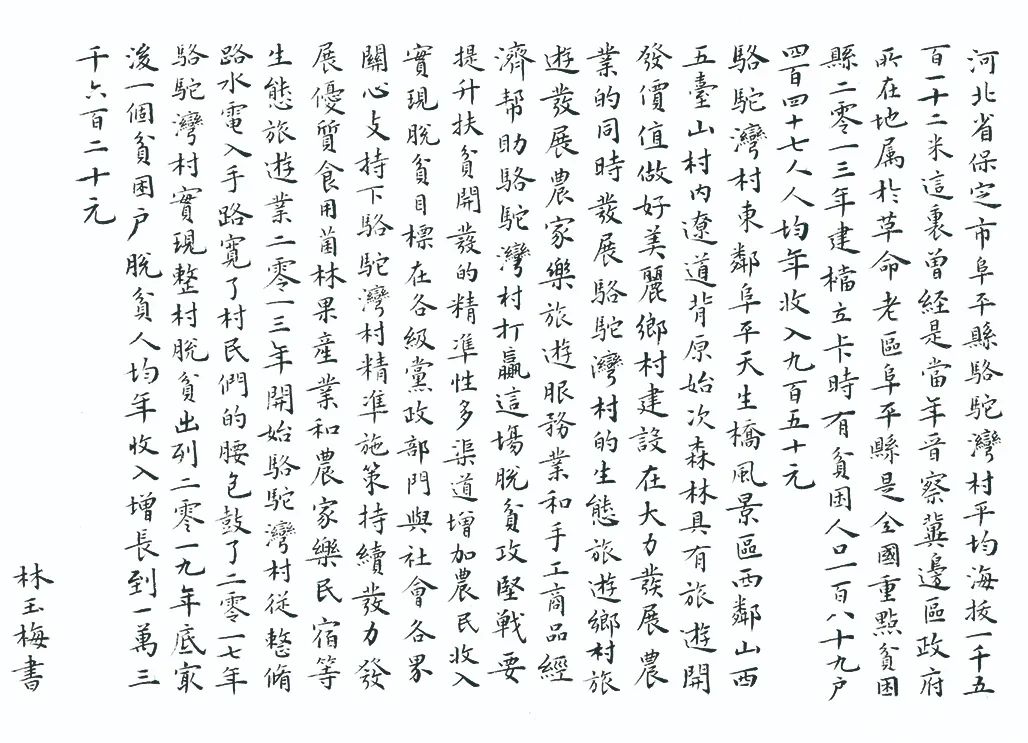 河北省保定市阜平縣駱駝灣村平均海拔一千五
百一十二米這裏曾経是當年晋察冀邊區政府
所在地属於草命老區阜平縣是全國重點貧困
縣二零一三年建檔立卡時有貧困人口一百八十九户
四百四十七人人均年收入九百五十元
駱駝灣村東鄰阜平天生橋風景區西鄰山西
五臺山村内遼道背原始次森林具有旅遊開
發價值做好美麗鄉村建設在大力發展農
業的同時發展駱駝灣村的生態旅遊鄉村旅
遊發展農家樂旅遊服務業和手工商品經
濟帮助駱駝灣村打贏這場脫貧攻堅戰要
提升扶貧開發的精準性多渠道增加農民收入
實現脫貧目標在各級黨政部門與社會各界
關心支持下駱駝灣村精準施策持續發力發
展優質食用菌林果産業和農家樂民宿等
生態旅遊業二零一三年開始駱駝灣村從整脩
路水電入手路寬了村民們的腰包鼓了二零一七年
駱駝灣村實現整村脫貧出列二零一九年底㝡
後一個貧困户脫貧人均年收入增長到一萬三
千六百二十元
林玉梅書